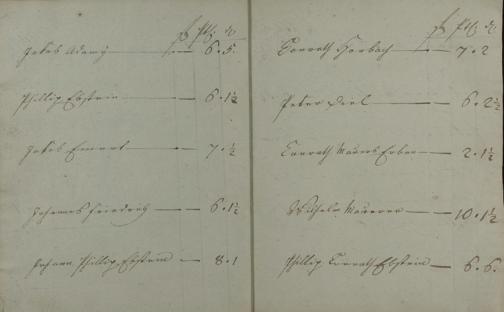 Jakob Adamy — 6 . 5.
Phillip Ebstein — 6 . 1½
Jakob Emmert — 7 . ½
Johannes Friedrich — 6 . 1½
Johann Phillip Ebstein — 8 . 1
Conrath Horbach — 7 . 2
Peter Diel — 6 . 2½
Conrath Maurers Erben — 2 . 1½
Wilhelm Maurerer — 10 . 1½
Phillip Conrath Ebstein — 6 . 6.